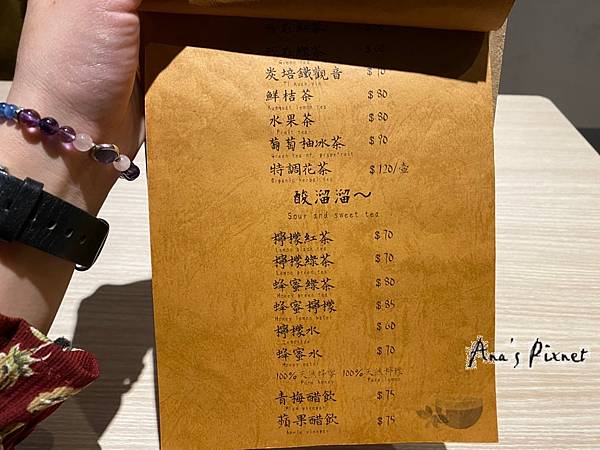 Green tea
炭培鐵觀音 $70
Ti Kuan Yin
鮮桔茶 $80
Kumquat lemon tea
水果茶 $80
Fruit tea
葡萄柚冰茶 $90
特調花茶 $120/壺
Organic herbal tea
酸溜溜～
Sour and sweet tea
檸檬紅茶 $70
Lemon black tea
檸檬綠茶 $70
Lemon green tea
蜂蜜綠茶 $80
Honey green tea
蜂蜜檸檬 $85
Honey lemon water
檸檬水 $60
Lemonade
蜂蜜水 $70
Honey water
100%天然蜂蜜 100%天然檸檬
Pure honey Pure lemon
青梅醋飲 $75
Plum vinegar
蘋果醋飲 $75
Apple vinegar
Ana's Pixnet